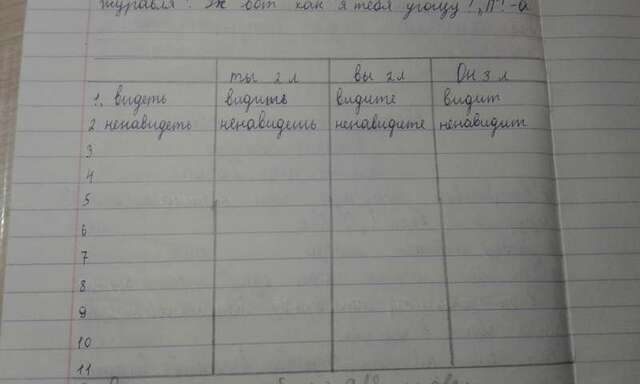 журавля: Уж вот как я тебя угощу!
ты 2 л вы 2 л Он 3 л
1. видеть видишь видите видит
2 ненавидеть ненавидишь ненавидите ненавидит
3
4
5
6
7
8
9
10
11